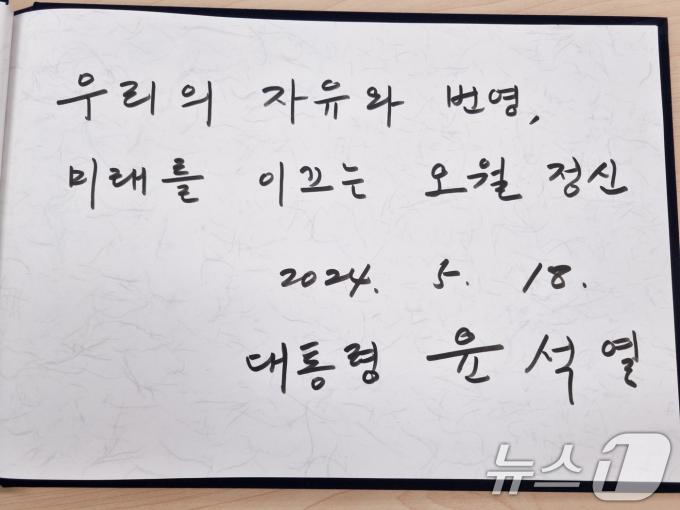 우리의 자유와 번영,
미래를 이끄는 오월 정신
2024. 5. 18.
대통령 윤석열
뉴스1